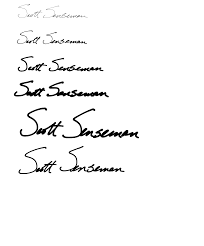 Scott Senseman
Scott Senseman
Scott Senseman
Scott Senseman
Scott Senseman
Scott Senseman